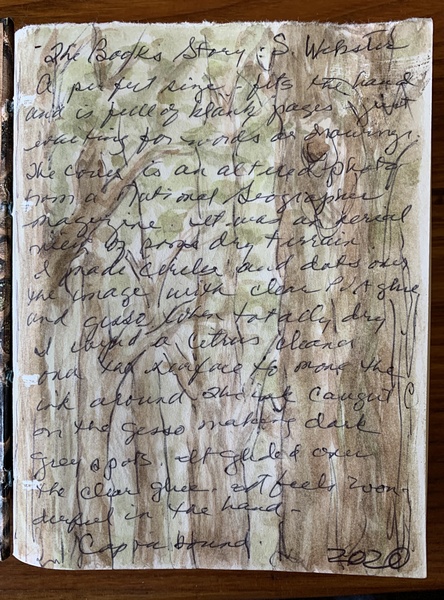 - The Book's Story - S. Webster
A perfect size - fits the hand
and is full of blank pages just
waiting for words or drawings.
The cover is an altered photo
from a National Geographic
magazine. It was an aerial
view of some dry terrain
I made circles and dots over
the image with clear PVA glue
and gesso. When totally dry
I used a citrus cleaner
and the surface to move the
ink around. The ink caught
on the gesso making dark
grey spots. It glided over
the clear glue. It feels won-
derful in the hand -
bound.
2020